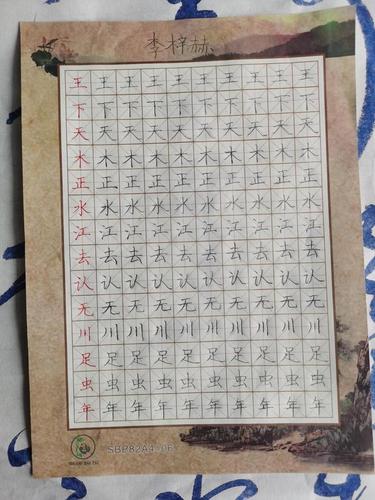 李梓赫
王王王王王王王王王王
下下下下下下下下下下
天天天天天天天天天天
木木木木木木木木木木
正正正正正正正正正正
水水水水水水水水水水
江江江江江江江江江江
去去去去去去去去去去
认认认认认认认认认认
无无无无无无无无无无
川川川川川川川川川川
足足足足足足足足足足
虫虫虫虫虫虫虫虫虫虫
年年年年年年年年年年